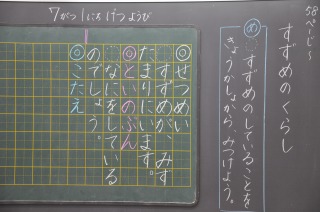 58ページ～
すずめのくらし
め すずめのしていることを、
きょうかしょから、みつけよう。
7がつ1にち げつようび
◎せつめい
すずめが、みず
たまりにいます。
◎といのぶん
なにをしている
のでしょう。
◎こたえ